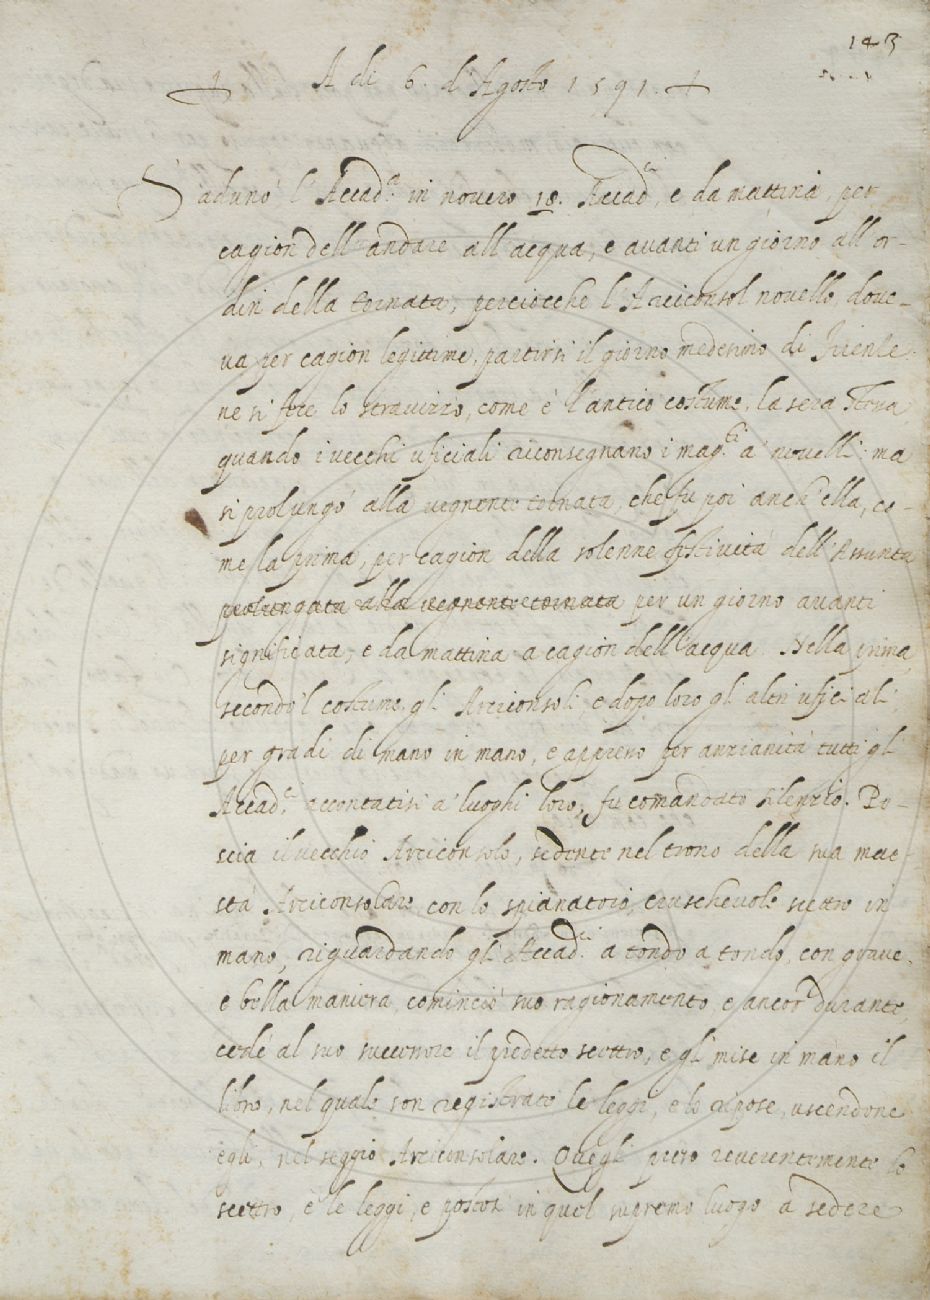 143
A di 6 d'Agosto 1591.
S'adunò l'Accad.ª in novero 18. Accad.ci, e da mattina, per
cagion dell'andare all'acqua, e avanti un giorno all'or-
din della tornata, perciocche l'Arciconsol novello, dove-
va per cagion legittime, partirsi il giorno medesimo di Firenze.
ne si fece lo stravizzo, come è l'antico costume, la sera
quando i vecchi uficiali riconsegnano i mag.ti a' novelli: ma
si prolungò alla vegnente tornata, che fu poi anch'ella, co-
me la prima, per cagion della solenne festività dell'Assunta
prolungata alla vegnente tornata per un giorno avanti
significata, e da mattina a cagion dell'acqua. Nella prima,
secondo 'l costume, gli Arciconsoli, e dopo loro gli altri uficiali,
per gradi di mano in mano, e appresso per anzianità tutti gl'
Accad.ci accontatisi a' luoghi loro, fu comandato silenzio. Po-
scia il vecchio Arciconsolo, sedente nel trono della sua mae-
stà Arciconsolare, con lo spianatoio, cruschevole scettro in
mano, riguardando gl'Accad.ci a tondo a tondo, con grave,
e bella maniera, cominciò suo ragionamento, e ancor durante
cedé al suo successore il predetto scettro, e gli mise in mano il
libro, nel quale son registrate le leggi, e lo ripose, uscendone
egli, nel seggio Arciconsolare. Quegli preso reverentemente lo
scettro, e le leggi, e postosi in quel supremo luogo a sedere